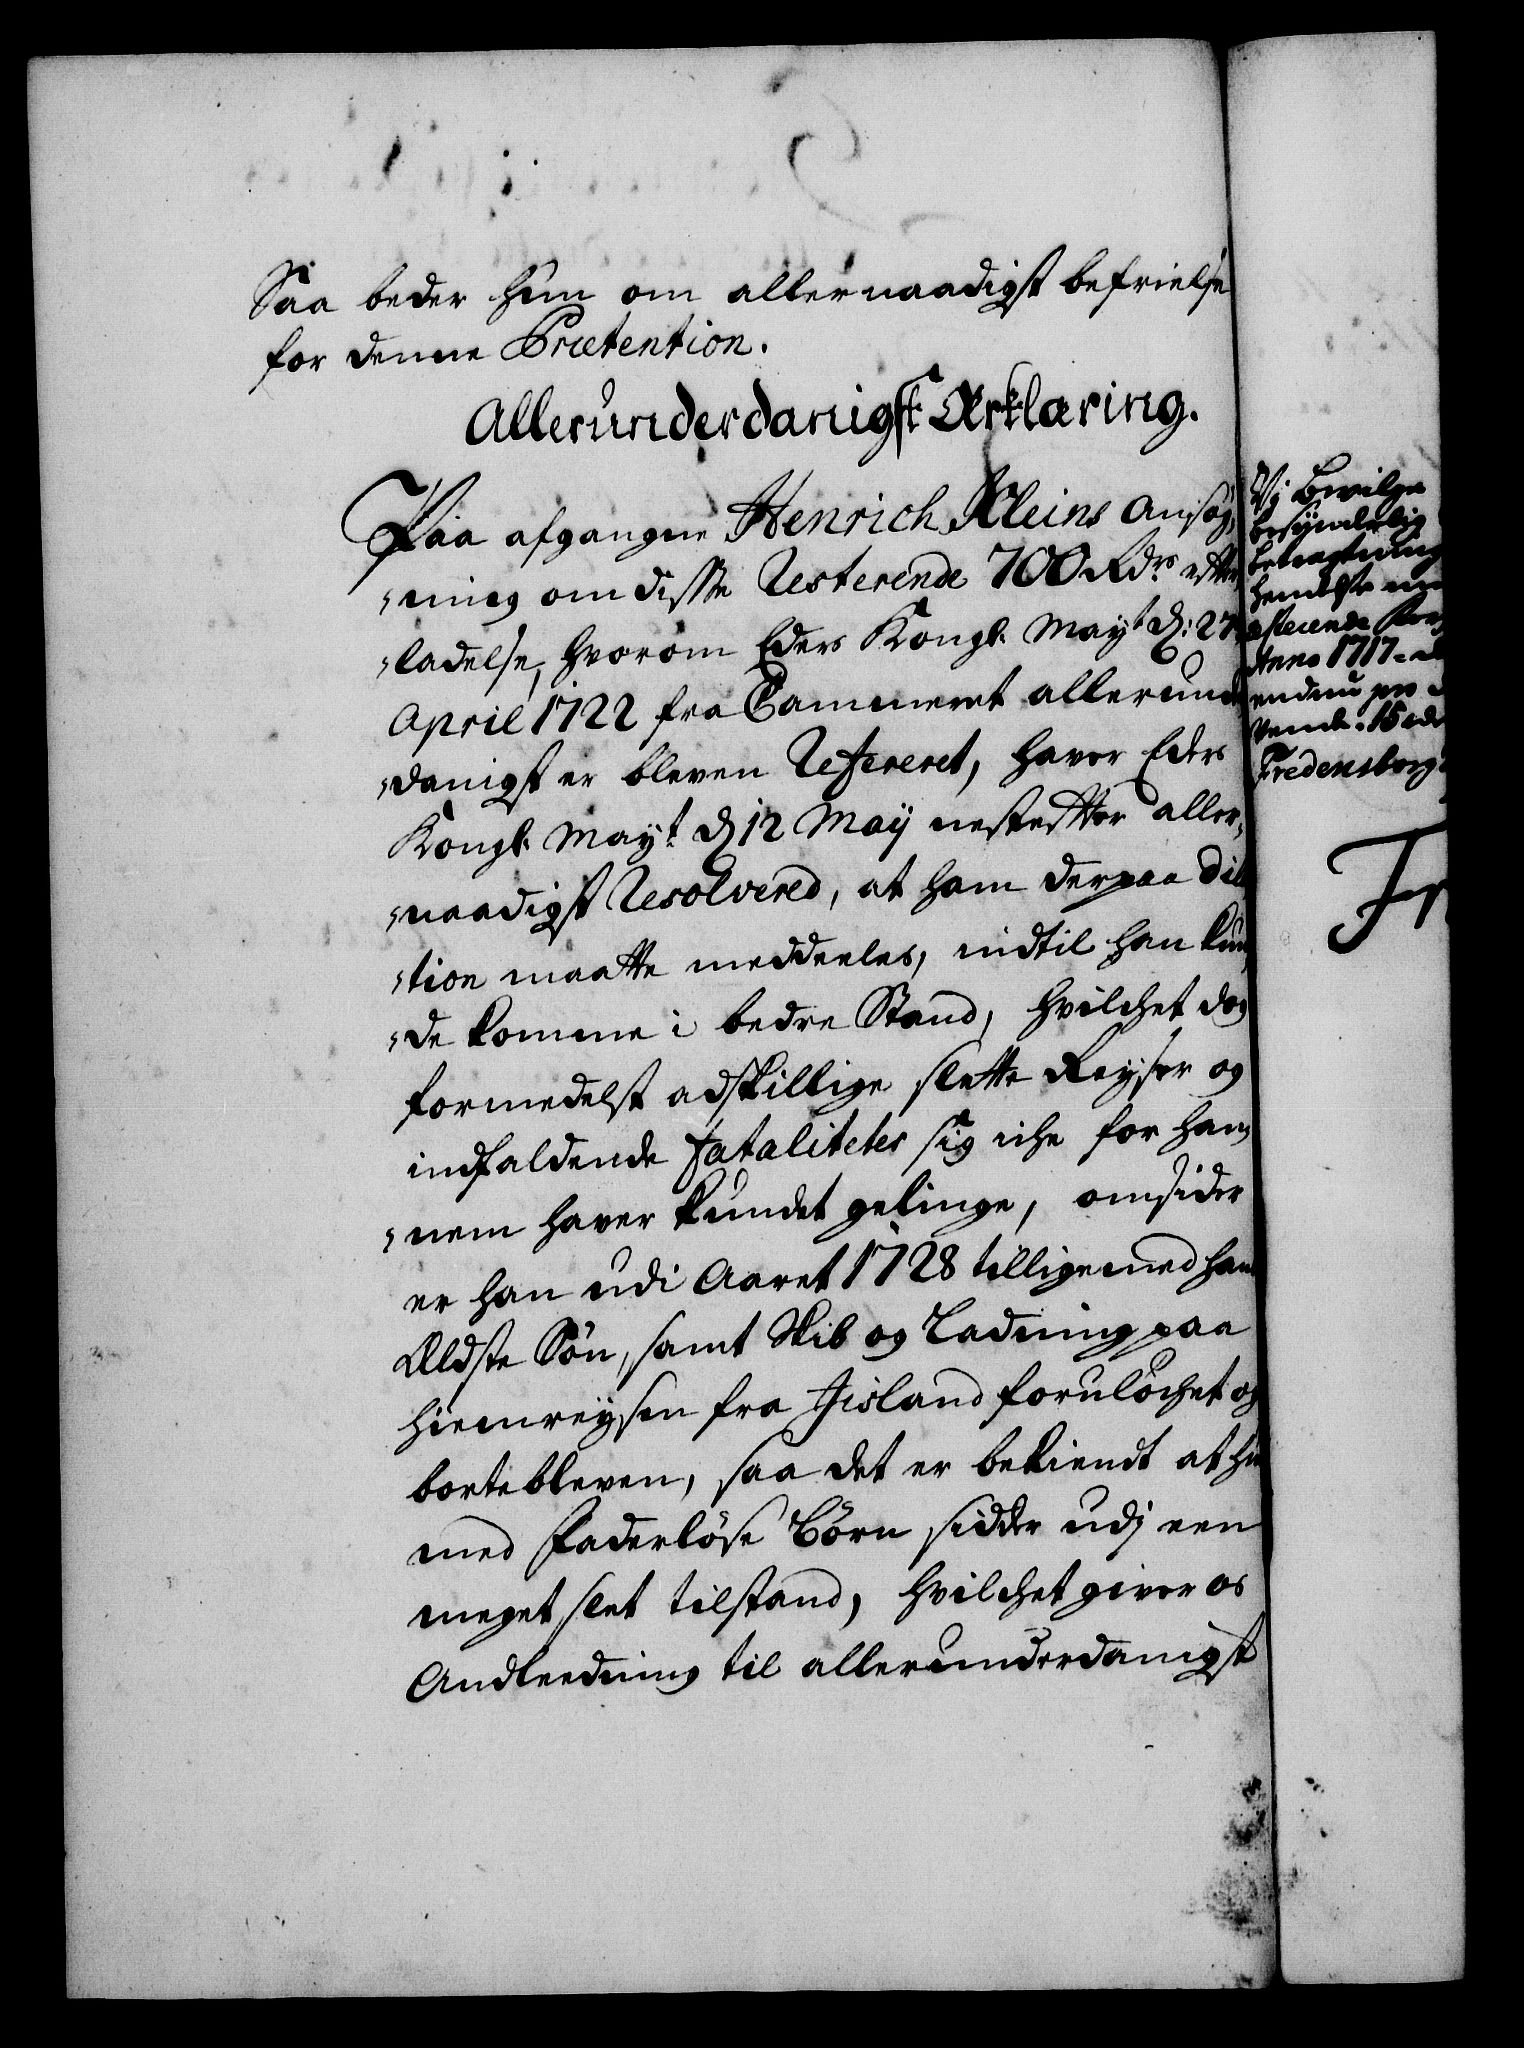 Saa beder hun om allernaadigst befrielse
for denne Prætention.
Allerunderdanigst Erklæring.
Paa afgangne Henrich Kleins ansøg,
,ning om disse Resterende 700 Rdrs efter
,ladelse, hvorom Eders Kongl: Mayt d: 27
April 1722 fra Cammeret allerund
,danigst er bleven Refereret, haver Eders
Kongl: Mayt d 12 Maij nestefter aller,
,naadigst Resolvered, at ham derpaa Dila
,tion maatte meddeeles, indtil han kun,
,de komme i bedre Stand, hvilchet dog
formedelst adskillige slette Reyser og
indfaldende fataliteter sig iche for ham
,nem haver kundet gelinge, omsider
er han udi Aaret 1728 tilligemed hans
Ældste Søn, samt Skib og Ladning paa
hiemreysen fra Iisland forulöchet og
bortebleven, saa det er bekiendt at hun
med Faderlöse Börn sidder udj een
meget slet tilstand, hvilchet giver os
Andleedning til allerunderdanigst
Vj bevilge
besynderlig
betragtning
hendelse
resterende
Anno 1717
endnu
15
Fredensborg
Fr